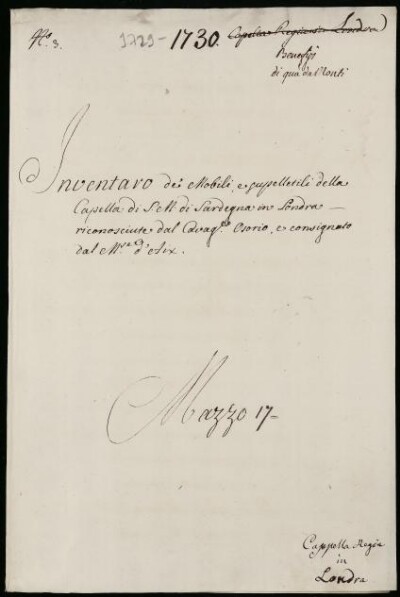 N.o 3. 1729 - 1730. Capella Regia in Londra
Benefizj
di quà da Monti
Inventaro dei Mobili, e suppelletili della
Capella di S. M. di Sardegna in Londra
riconosciute dal Cavag.re Osorio, e consignato
dal M.se d'Aix.
Mazzo 17
Cappella Regia
in
Londra